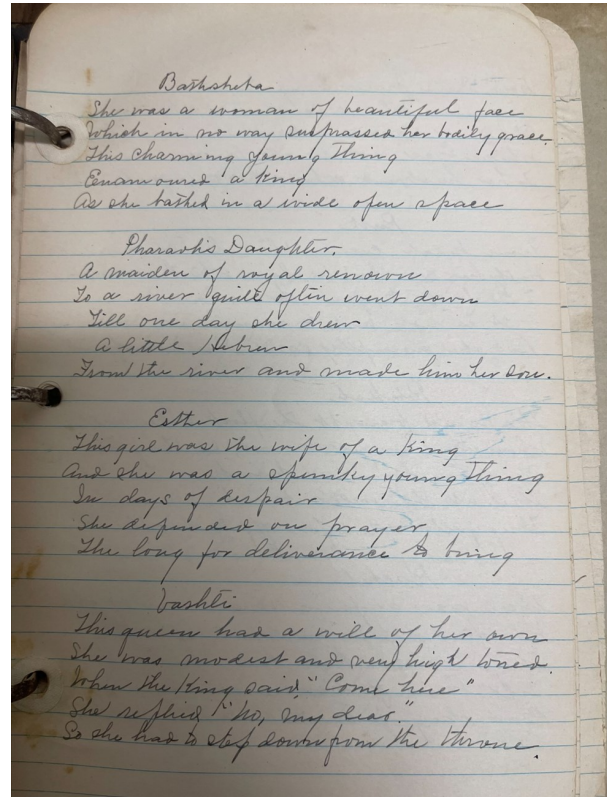 Bathsheba
She was a woman of beautiful face
Which in no way surprassed her bodily grace.
This charming young thing
Enamoured a king
As she bathed in a wide open space
Pharaoh's Daughter.
A maiden of royal renown
To a river quite often went down
Till one day she drew
A little Hebrew
From the river and made him her son.
Esther
This girl was the wife of a King
And she was a spunky young thing
In days of despair
She depended on prayer
The long for deliverance to bring
Vashti
This queen had a will of her own
She was modest and very high toned.
When the King said "Come here"
She replied "No, my dear."
So she had to step down from the throne.